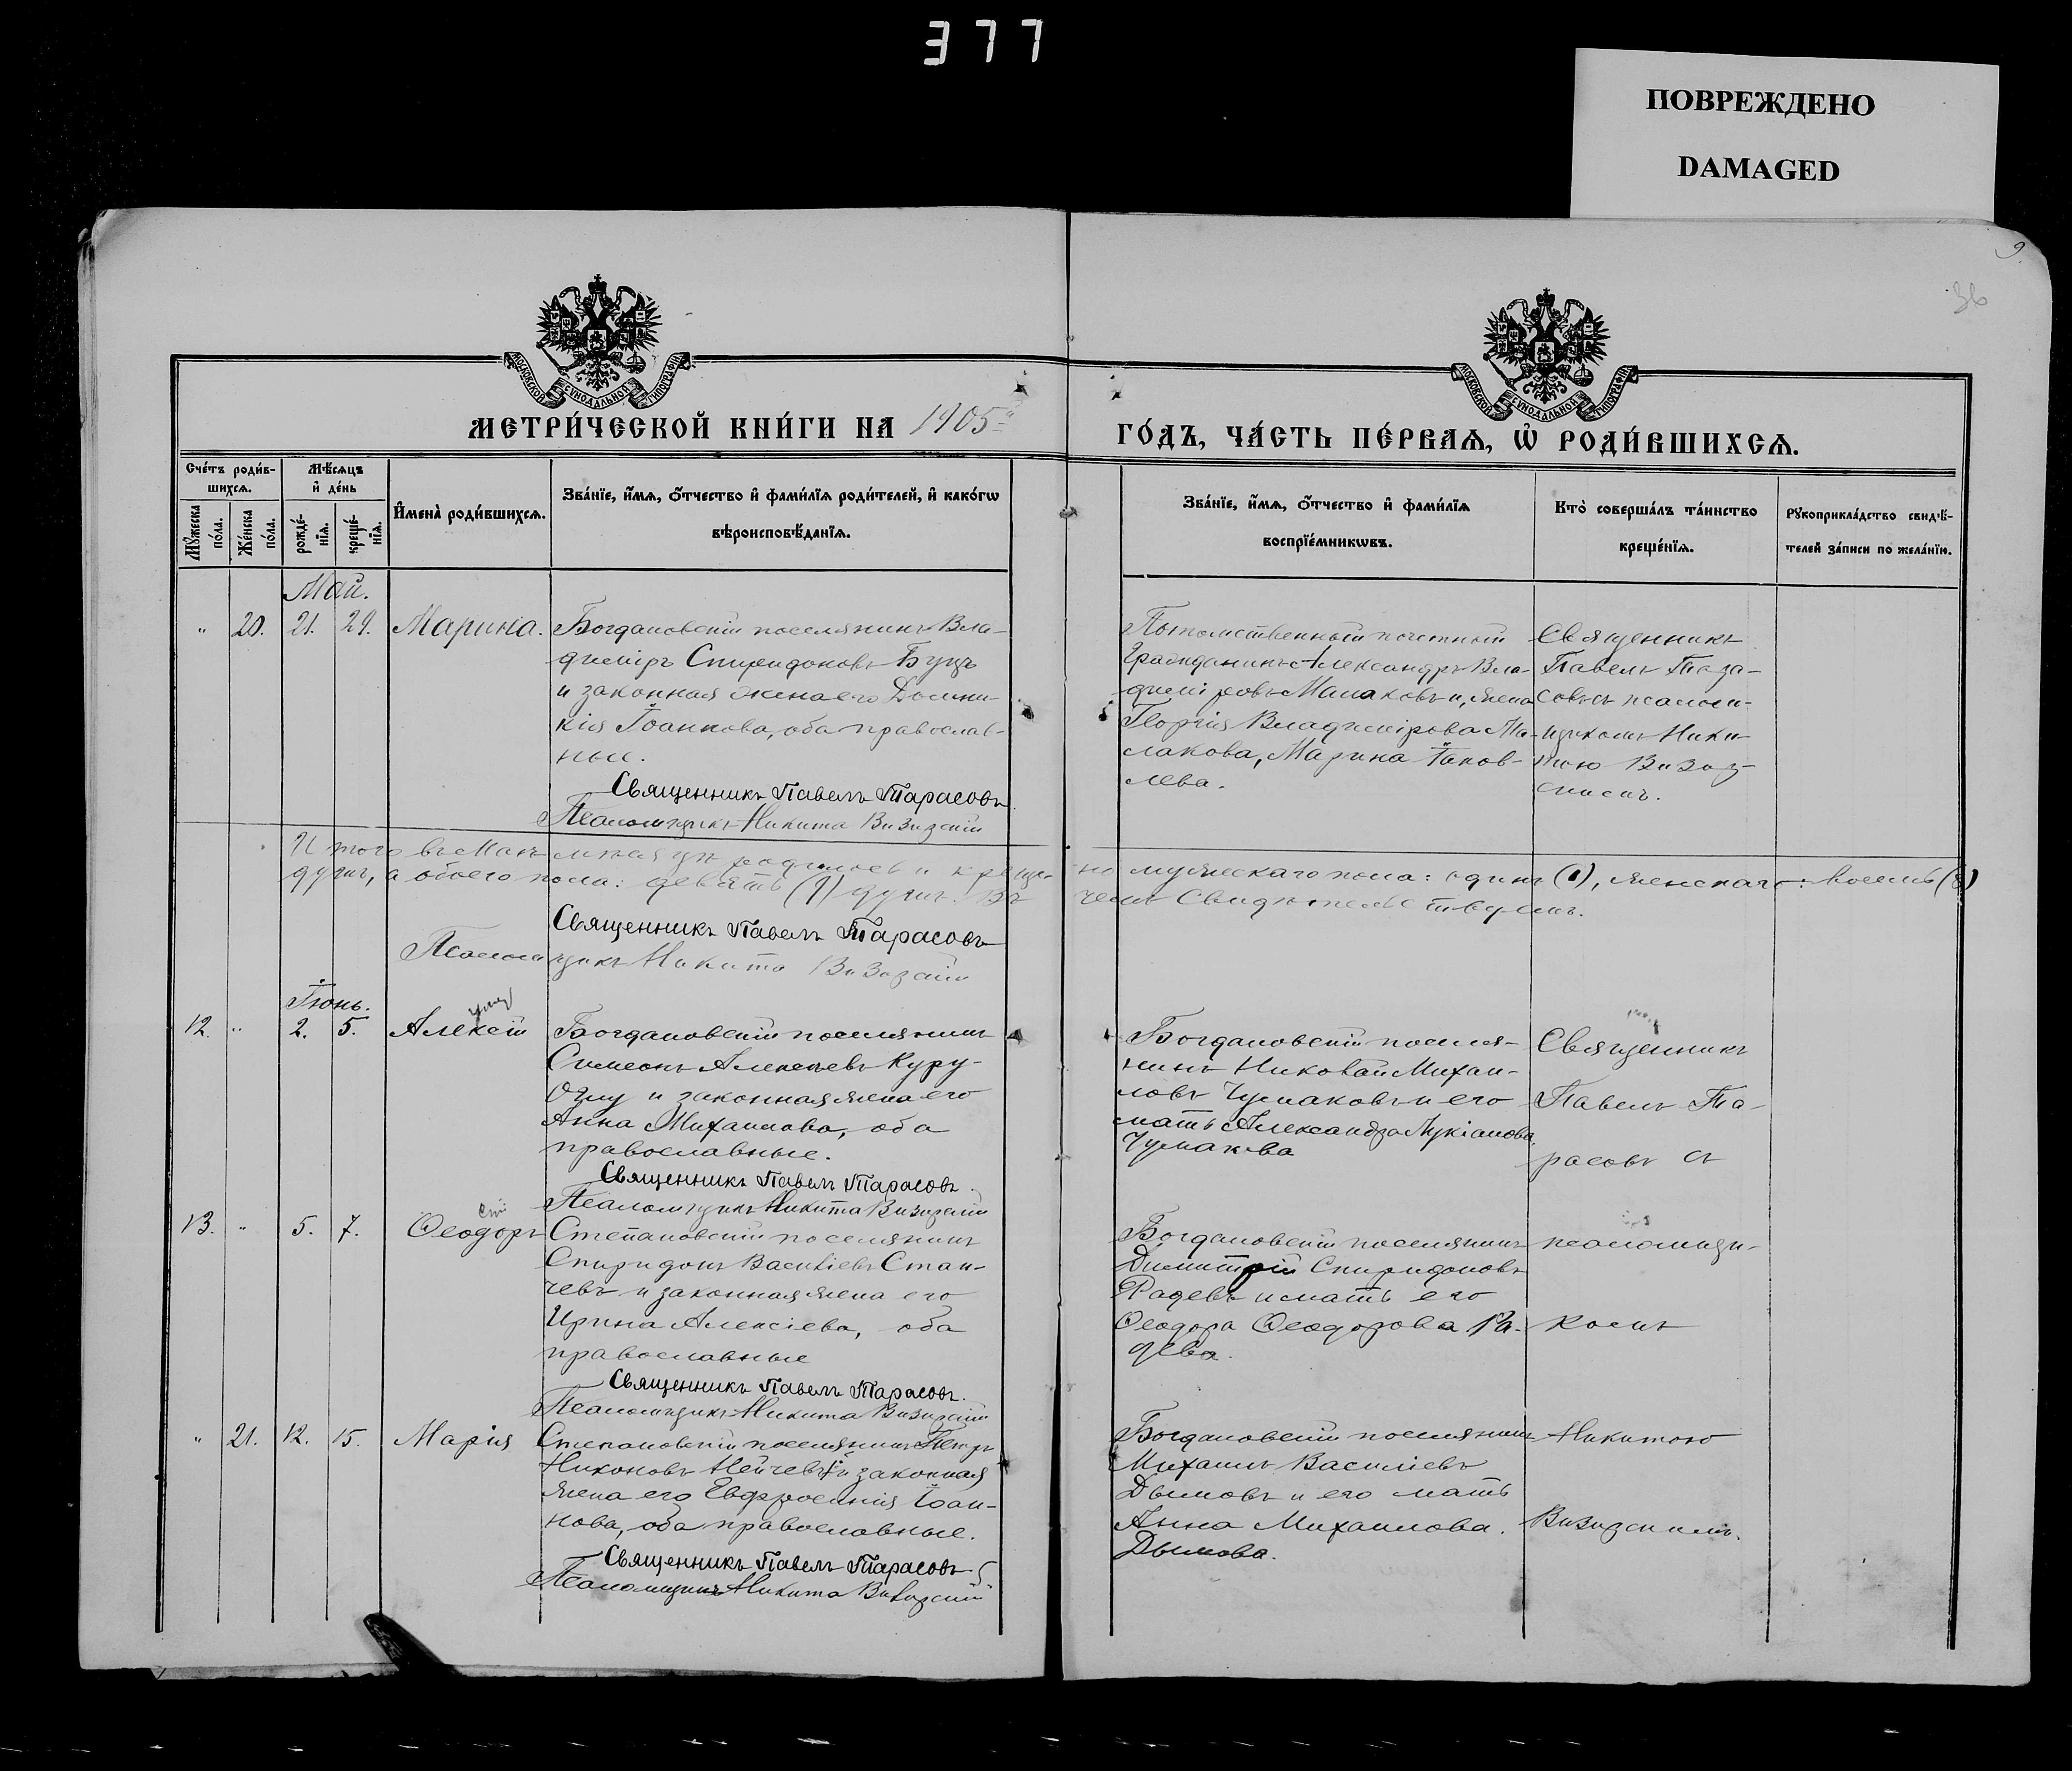 377
ПОВРЕЖДЕНО
DAMAGED
9.
36
МОСКОВСКОЙ СѴНОДАЛЬНОЙ ТИПОГРАФІИ
МОСКОВСКОЙ СѴНОДАЛЬНОЙ ТИПОГРАФІИ
МЕТРИ́ЧЕСКОЙ КНИ́ГИ НА 1905
ГО́ДЪ, ЧА́СТЬ ПЕ́РВАѦ, Ѡ҆ РОДИ́ВШИХСѦ.
Сче́тъ роди́в-
шихсѧ.
Мꙋ́жеска по́ла.
Же́нска по́ла.
Мѣ́сѧцъ
и҆ де́нь
рожде́-нїѧ.
креще́-нїѧ.
И҆мена̀ роди́вшихсѧ.
Зва́нїе, и҆́мѧ, ѻ҆́тчество и҆ фами́лїѧ роди́телей, и҆ како́гѡ
вѣроисповѣ́данїѧ.
Зва́нїе, и҆́мѧ, ѻ҆́тчество и҆ фами́лїѧ
воспрїе́мникѡвъ.
Кто̀ соверша́лъ та́инство
креще́нїѧ.
Рꙋкоприкла́дство свидѣ́-
телей за́писи по жела́нїю.
Май.
" 20. 21. 29. Марина.
Богдановскій поселянинъ Вла-
диміръ Спиридоновъ Буцъ
и законная жена его Домни-
кія Іоаннова, оба православ-
ные.
Священникъ Павелъ Тарасовъ
Псаломщикъ Никита Визирскій
Потомственный почетный
Гражданинъ Александръ Вла-
диміровъ Малаковъ и, жена
Георгія Владимірова Ма-
лакова, Марина Іаков-
лева.
Священникъ
Павелъ Тара-
совъ съ псаломщ-
икомъ Ники-
тою Визир-
скимъ.
Итого въ Маѣ мѣсяцѣ родилось и креще-но мужескаго пола: одинъ (1), женскаго: восемь (8)
душъ, а обоего пола: девять (9) душъ. Въ чемъ Свидѣтельствуемъ.
Священникъ Павелъ Тарасовъ
Псаломщикъ Никита Визирскій
Іюнь.
12. " 2. 5. Алексій
Богдановскій поселянинъ
Симеонъ Алексѣевъ Куру-
Оглу и законная жена его
Анна Михаилова, оба
православные.
Священникъ Павелъ Тарасовъ.
Псаломщикъ Никита Визирскій
Богдановскій поселя-
нинъ Николай Михаи-
ловъ Чумаковъ и его
мать Александра Лукіанова
Чумакова
Священникъ
Павелъ Та-
расовъ съ
13. " 5. 7. Ѳеодоръ
Степановскій поселянинъ
Спиридонъ Василіевъ Стан-
чевъ и законная жена его
Ирина Алексіева, оба
православные
Священникъ Павелъ Тарасовъ.
Псаломщикъ Никита Визирскій
Богдановскій поселянинъ
Димитрій Спиридоновъ
Радевъ и мать его
Ѳеодора Ѳеодорова Ра-
дева.
псаломщи-
комъ
" 21. 12. 15. Марія
Степановскій поселянинъ Петръ
Никоновъ Нейчевъ и законная
жена его Евфросинія Іоан-
нова, оба православные.
Священникъ Павелъ Тарасовъ
Псаломщикъ Никита Визирскій
Богдановскій поселянинъ
Михаилъ Василіевъ
Дымовъ и его мать
Анна Михаилова.
Дымова.
Никитою
Визирскимъ.